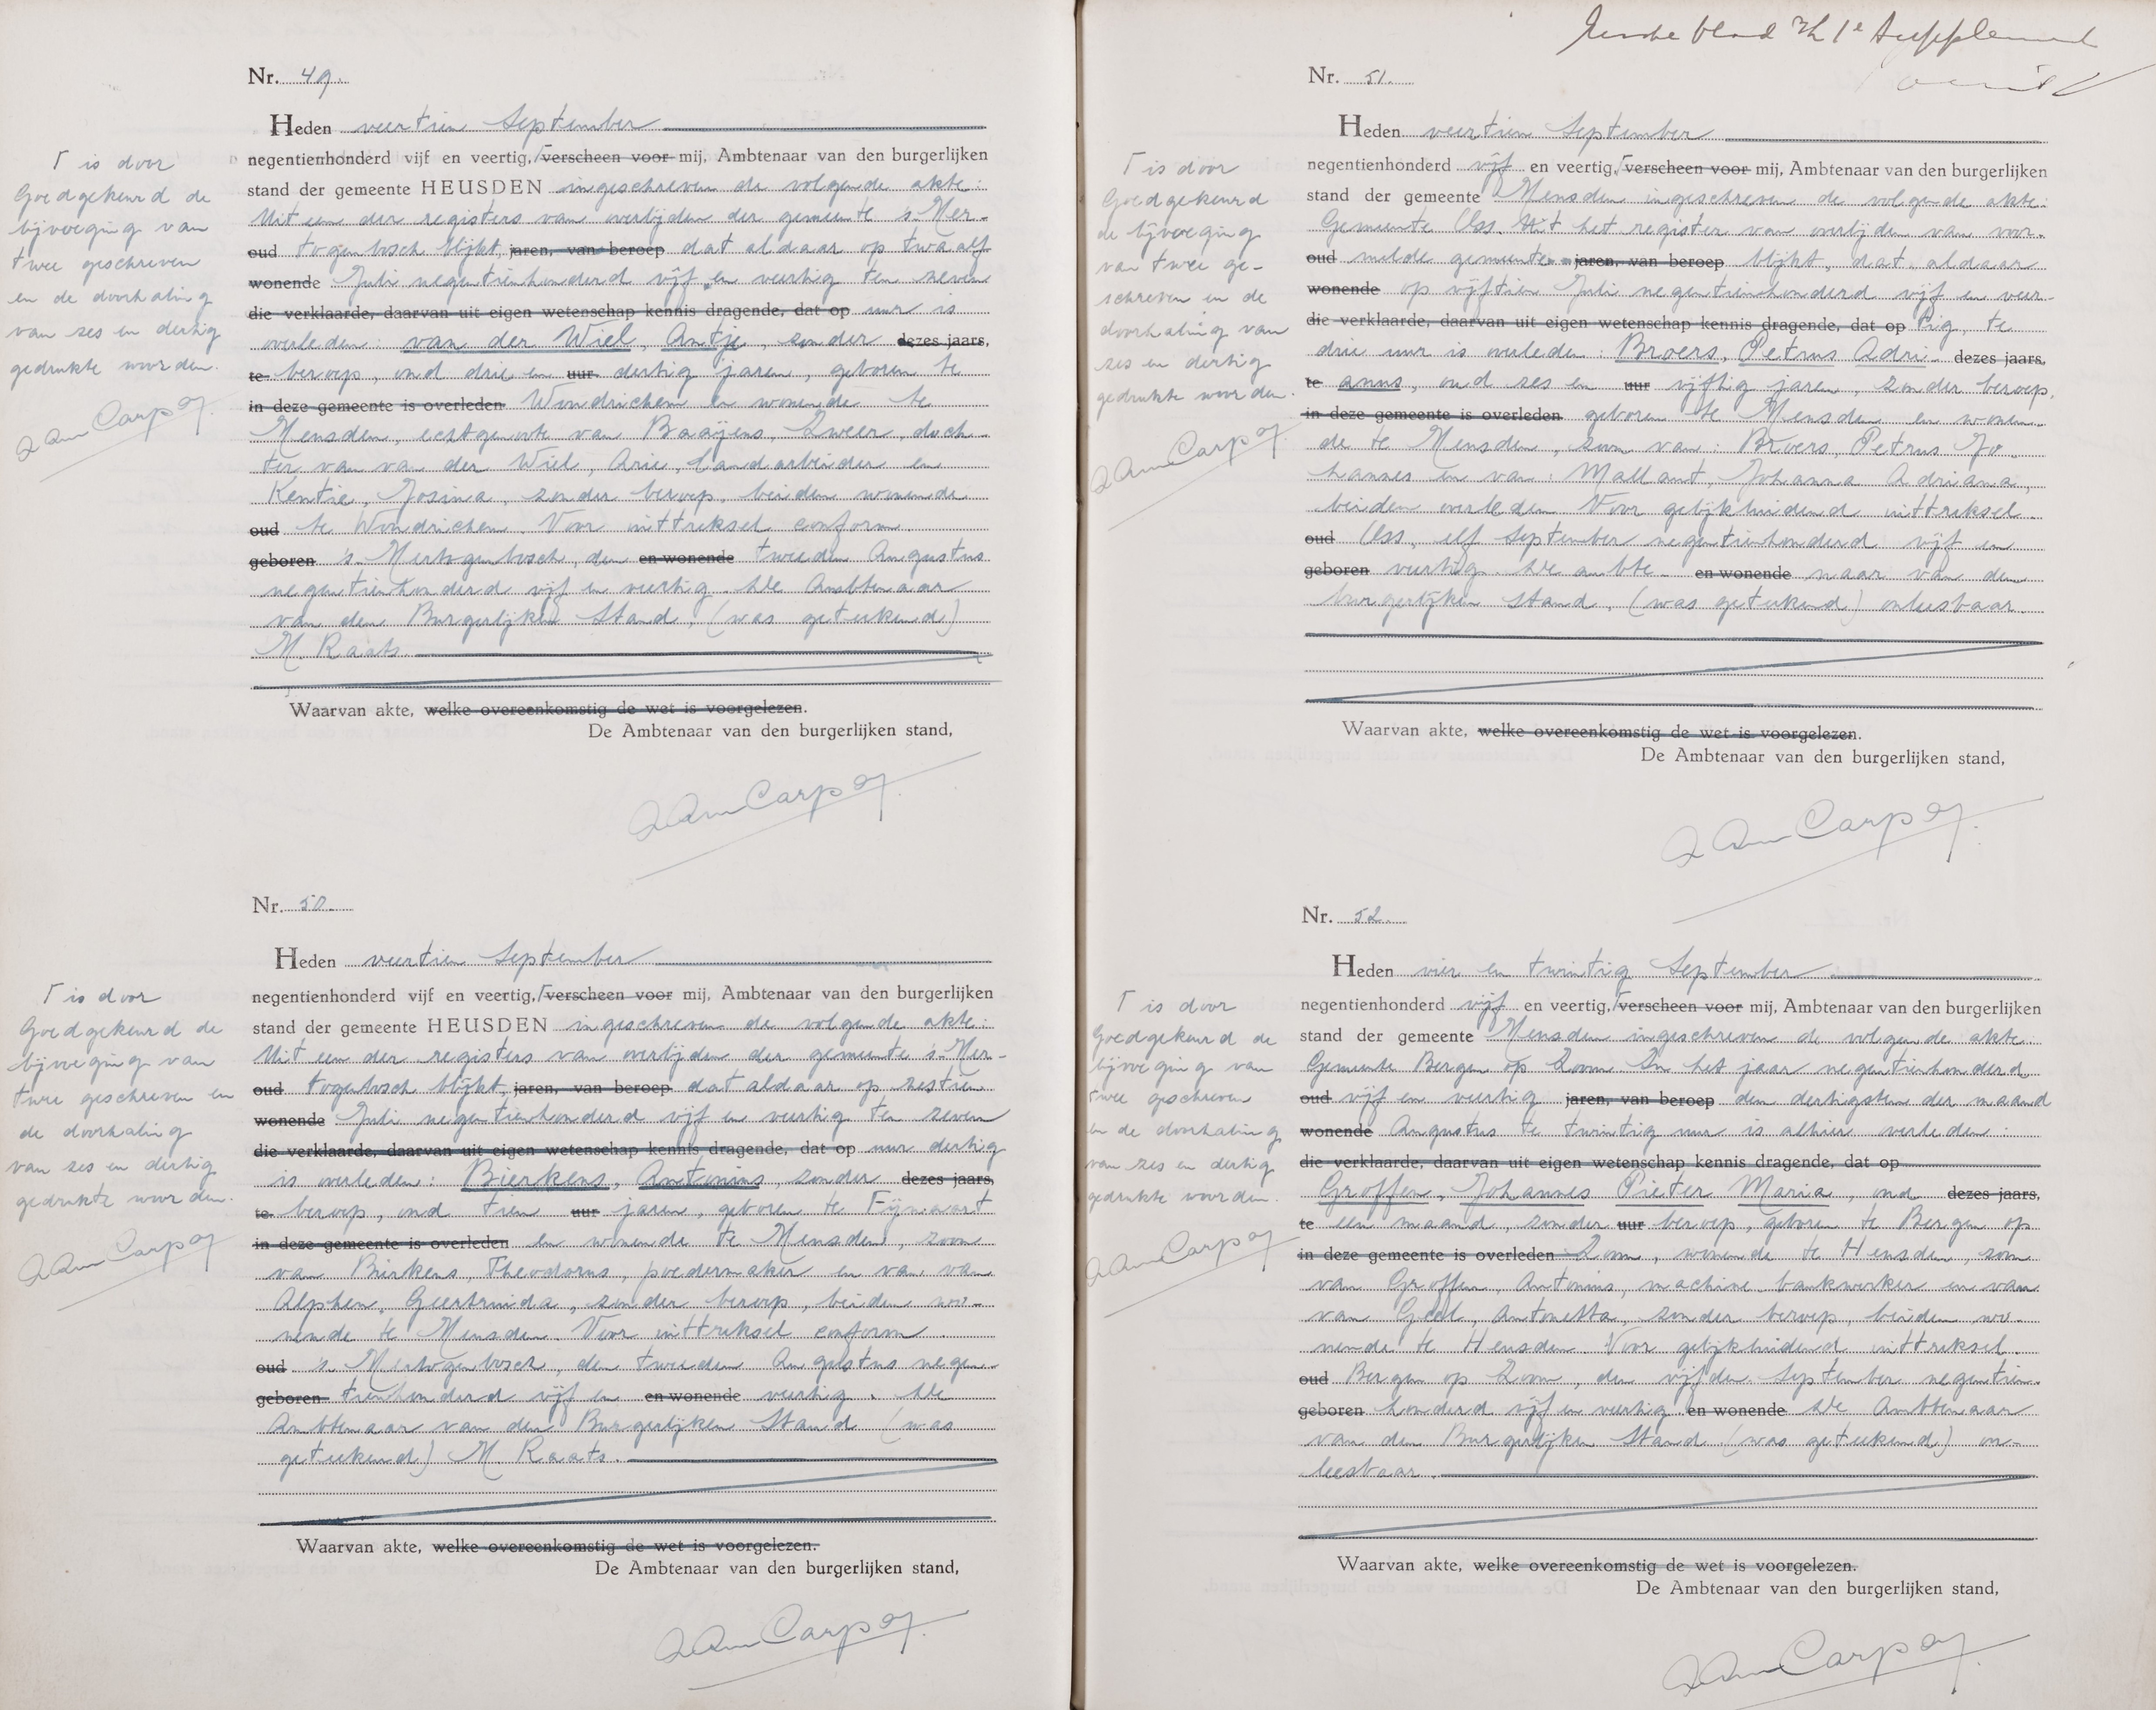 Nr. 49.
Heden veertien September
negentienhonderd vijf en veertig, ┌verscheen voor mij, Ambtenaar van den burgerlijken
stand der gemeente HEUSDEN ingeschreven de volgende akte:
Uit een der registers van overlijden der gemeente 's-Her-
oud togenbosch blijkt, jaren, van beroep dat aldaar op twaalf
wonende Juli negentienhonderd vijf en veertig ten zeven
die verklaarde, daarvan uit eigen wetenschap kennis dragende, dat op uur is
overleden: van der Wiel, Antje, zonder dezes jaars,
te beroep, oud drie en uur dertig jaren, geboren te
in deze gemeente is overleden Woudrichem en wonende te
Heusden, echtgenoote van Baaijens, Zweer, doch-
ter van van der Wiel, Arie, landarbeider en
Kentie, Jozina, zonder beroep, beiden wonende
oud te Woudrichem. Voor uittreksel conform
geboren 's-Hertogenbosch, den en wonende tweeden Augustus
negentienhonderd vijf en veertig. De Ambtenaar
van den Burgerlijken Stand. (was geteekend)
M. Raats.
Waarvan akte, welke overeenkomstig de wet is voorgelezen.
De Ambtenaar van den burgerlijken stand,
┌ is door
Goedgekeurd de
bijvoeging van
twee geschreven
en de doorhaling
van zes en dertig
gedrukte woorden.
Nr. 50.
Heden veertien September
negentienhonderd vijf en veertig, ┌verscheen voor mij, Ambtenaar van den burgerlijken
stand der gemeente HEUSDEN ingeschreven de volgende akte:
Uit een der registers van overlijden der gemeente 's-Her-
oud togenbosch blijkt, jaren, van beroep dat aldaar op zestien
wonende Juli negentienhonderd vijf en veertig ten zeven
die verklaarde, daarvan uit eigen wetenschap kennis dragende, dat op uur dertig
is overleden: Bierkens, Antonius, zonder dezes jaars,
te beroep, oud tien uur jaren, geboren te Fijnaart
in deze gemeente is overleden en wonende te Heusden, zoon
van Bierkens, Theodorus, poedermaker en van van
Alphen, Geertruida, zonder beroep, beiden wo-
nende te Heusden. Voor uittreksel conform.
oud 's-Hertogenbosch, den tweeden Augustus negen-
geboren tienhonderd vijf en en wonende veertig. De
Ambtenaar van den Burgerlijken Stand (was
geteekend) M. Raats.
Waarvan akte, welke overeenkomstig de wet is voorgelezen.
De Ambtenaar van den burgerlijken stand,
┌ is door
Goedgekeurd de
bijvoeging van
twee geschreven en
de doorhaling
van zes en dertig
gedrukte woorden.
blad 1e Supplement
Nr. 51.
Heden veertien September
negentienhonderd vijf en veertig, ┌verscheen voor mij, Ambtenaar van den burgerlijken
stand der gemeente Heusden ingeschreven de volgende akte:
Gemeente Oss. Uit het register van overlijden van voor-
oud melde gemeente jaren, van beroep blijkt, dat aldaar
wonende op vijftien Juli negentienhonderd vijf en veer-
die verklaarde, daarvan uit eigen wetenschap kennis dragende, dat op tig, te
drie uur is overleden: Broers, Petrus Adri- dezes jaars,
te anus, oud zes en uur vijftig jaren, zonder beroep,
in deze gemeente is overleden geboren te Heusden en wonen-
de te Heusden, zoon van: Broers, Petrus Jo-
hannes en van: Mallant, Johanna Adriana,
beiden overleden Voor gelijkluidend uittreksel.
oud Oss, elf September negentienhonderd vijf en
geboren veertig. De ambte- en wonende naar van den
burgerlijken stand. (was geteekend) onleesbaar.
Waarvan akte, welke overeenkomstig de wet is voorgelezen.
De Ambtenaar van den burgerlijken stand,
┌ is door
Goedgekeurd
de bijvoeging
van twee ge-
schreven en de
doorhaling van
zes en dertig
gedrukte woorden.
Nr. 52.
Heden vier en twintig September
negentienhonderd vijf en veertig, ┌verscheen voor mij, Ambtenaar van den burgerlijken
stand der gemeente Heusden ingeschreven de volgende akte.
Gemeente Bergen op Zoom In het jaar negentienhonderd
oud vijf en veertig jaren, van beroep den dertigsten der maand
wonende Augustus te twintig uur is alhier overleden:
die verklaarde, daarvan uit eigen wetenschap kennis dragende, dat op
Groffen, Johannes Pieter Maria, oud dezes jaars,
te een maand, zonder uur beroep, geboren te Bergen op
in deze gemeente is overleden Zoom, wonende te Heusden, zoon
van Groffen, Antonius, machine bankwerker en van
van Geel, Antonetta, zonder beroep, beiden wo-
nende te Heusden. Voor gelijkluidend uittreksel.
oud Bergen op Zoom, den vijfden September negentien-
geboren honderd vijf en veertig en wonende De Ambtenaar
van den Burgerlijken Stand (was geteekend) on-
leesbaar.
Waarvan akte, welke overeenkomstig de wet is voorgelezen.
De Ambtenaar van den burgerlijken stand,
┌ is door
Goedgekeurd de
bijvoeging van
twee geschreven
en de doorhaling
van zes en dertig
gedrukte woorden.